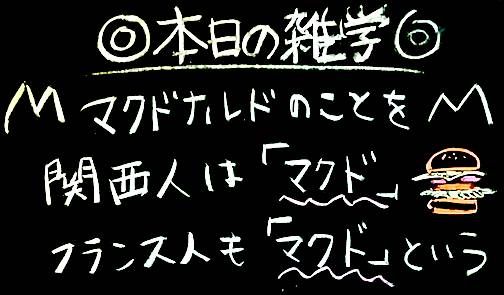 ◎本日の雑学◎
M マクドナルドのことを M
関西人は「マクド」
フランス人も「マクド」という